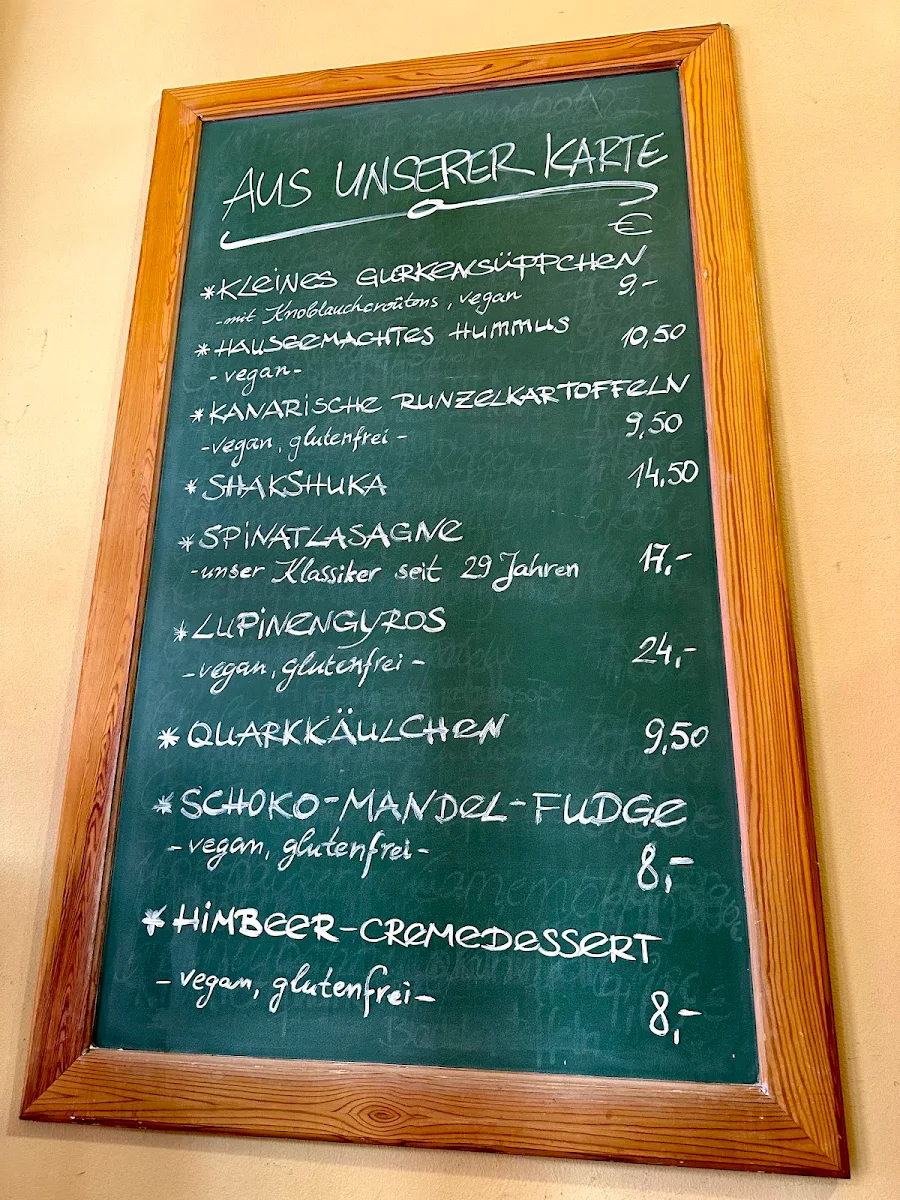 AUS UNSERER KARTE
€
*KLEINES GURKENSÜPPCHEN
-mit Knoblauchcroûtons, vegan 9,-
*HAUSGEMACHTES HUMMUS 10,50
-vegan-
*KANARISCHE RUNZELKARTOFFELN
-vegan, glutenfrei- 9,50
*SHAKSHUKA 14,50
*SPINATLASAGNE
-unser Klassiker seit 29 Jahren 17,-
*LUPINENGYROS
-vegan, glutenfrei- 24,-
*QUARKKÄULCHEN 9,50
*SCHOKO-MANDEL-FUDGE
-vegan, glutenfrei- 8,-
*HIMBEER-CREMEDESSERT
-vegan, glutenfrei- 8,-